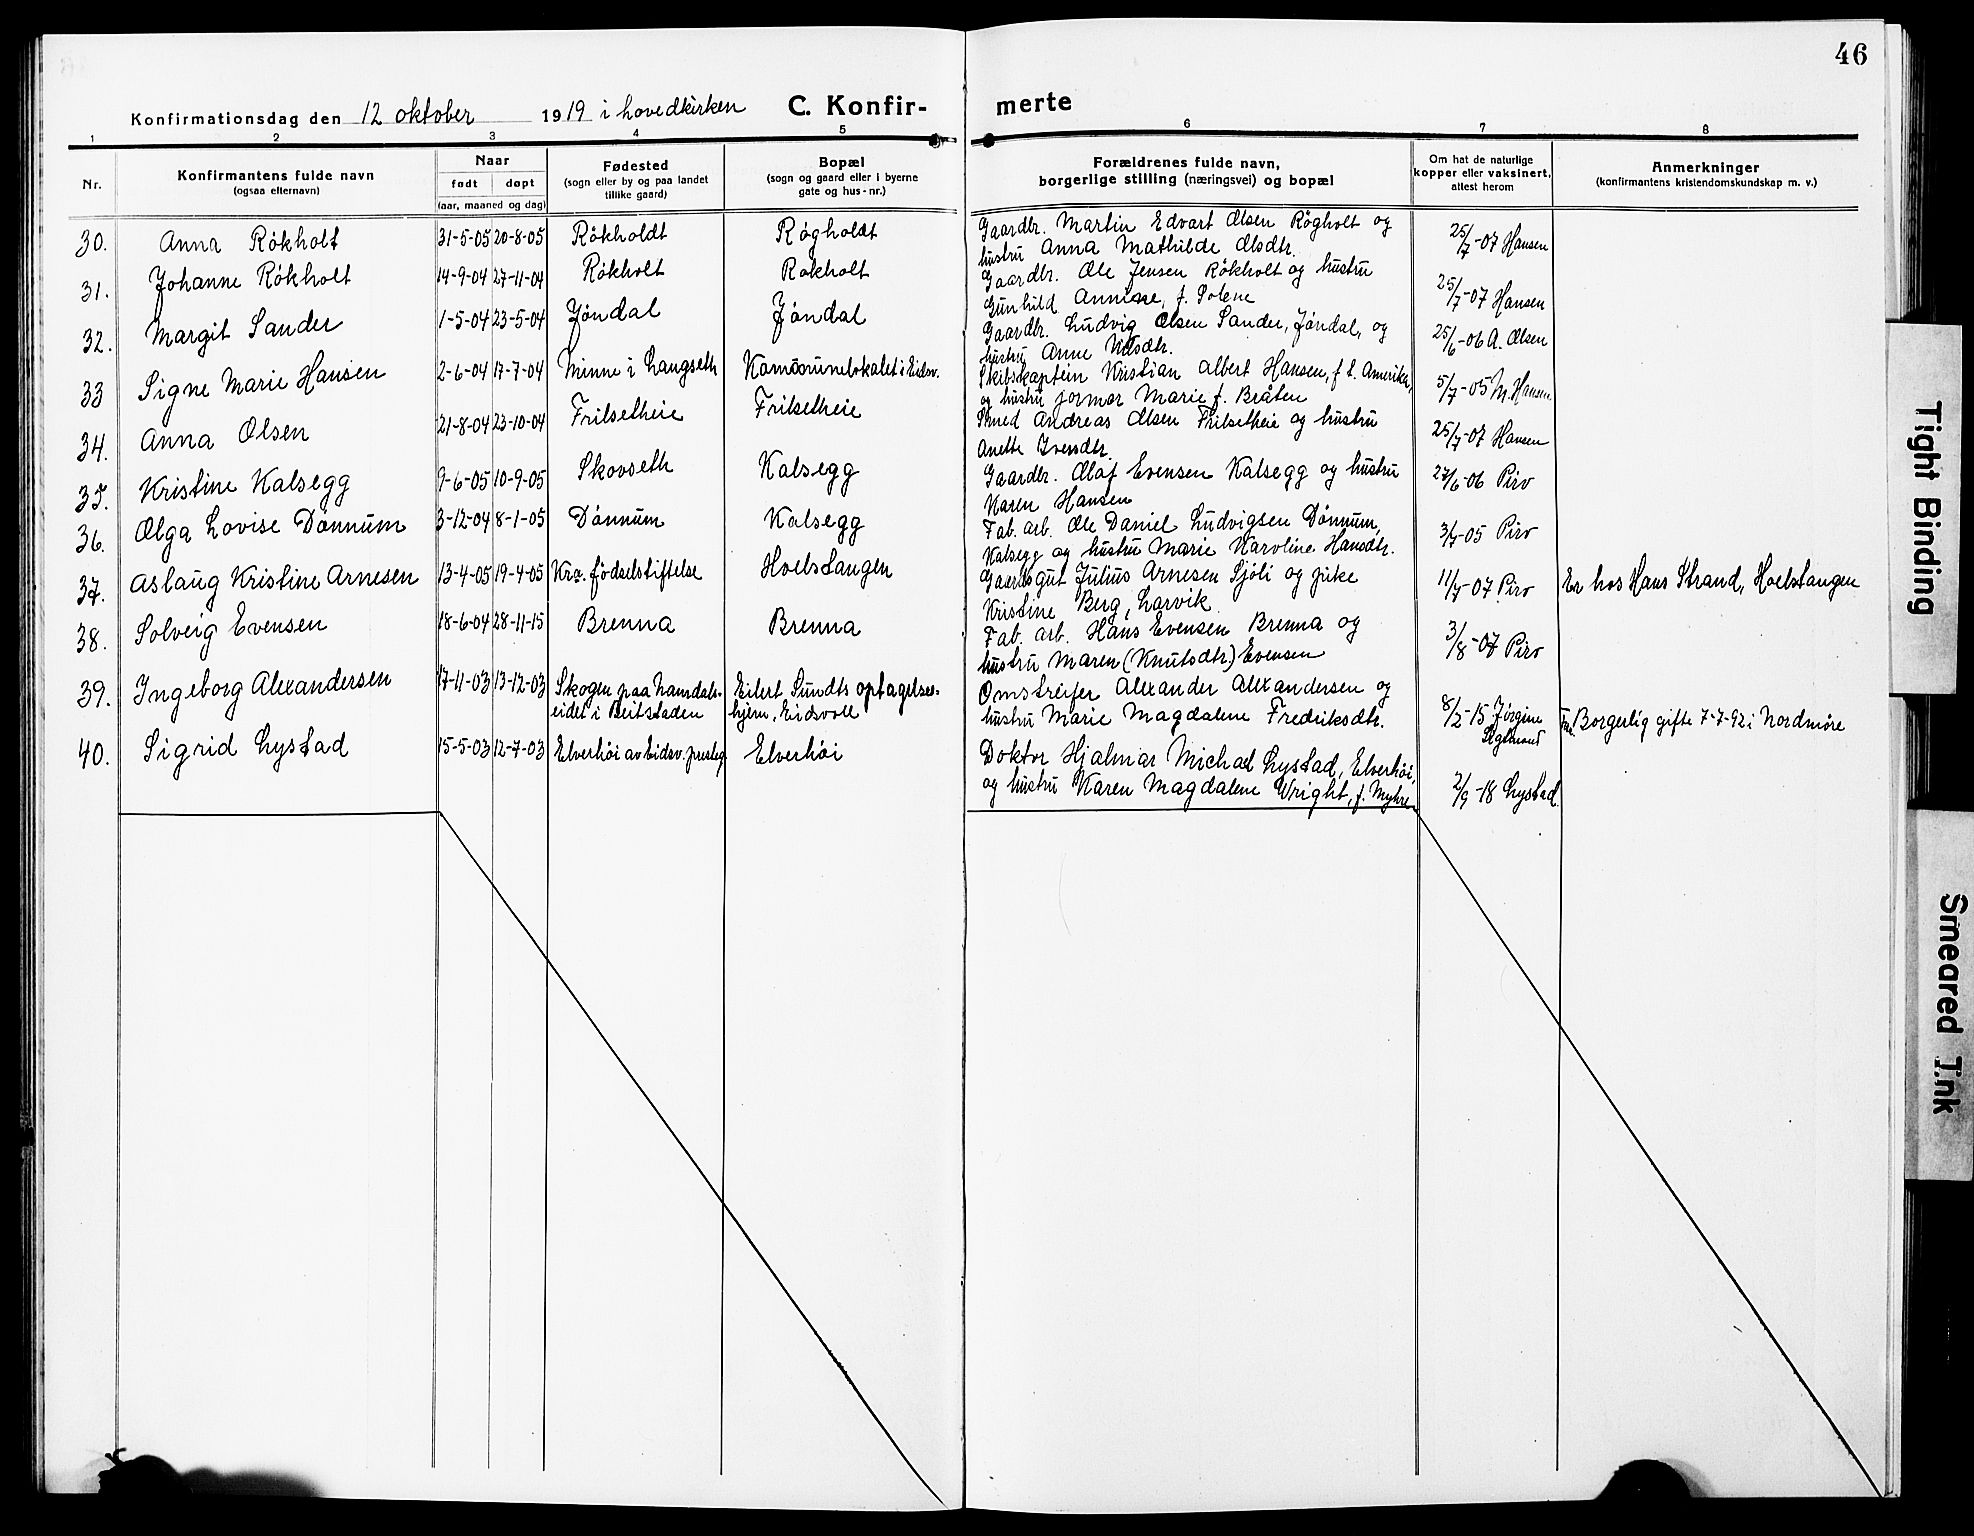 46
Konfirmationsdag den 12 oktober 1919 i hovedkirken C. Konfir- merte
1 2 3 4 5 6 7 8
Nr.
Konfirmantens fulde navn
(ogsaa efternavn)
Naar
født døpt
(aar, maaned og dag)
Fødested
(sogn eller by og paa landet
tillike gaard)
Bopæl
(sogn og gaard eller i byerne
gate og hus-nr.)
Forældrenes fulde navn,
borgerlige stilling (næringsvei) og bopæl
Om hat de naturlige
kopper eller vaksinert,
attest herom
Anmerkninger
(konfirmantens kristendomskundskap m. v.)
30. Anna Røkholt 31-5-05 20-8-05 Røkholdt Røgholdt Gaardbr. Martin Edvart Olsen Røgholt og
hustru Anna Mathilde Olsdtr. 25/7-07 Hansen
31. Johanne Røkholt 14-9-04 27-11-04 Røkholt Røkholt Gaardbr. Ole Jensen Røkholt og hustru
Gunhild Annine, f. Solene 25/7-07 Hansen
32. Margit Sander 1-5-04 23-5-04 Jøndal Jøndal Gaardbr. Ludvig Olsen Sander, Jøndal, og
hustru Anne Nilsdtr. 25/6-06 A. Olsen
33 Signe Marie Hansen 2-6-04 17-7-04 Minne i Langseth Komõsunelokalet i Eidsv. Skibskaptein Kristian Albert Hansen, f t. Amerika,
og hustru Jormar Marie f. Bråten 5/7-05 M. Hansen
34. Anna Olsen 21-8-04 23-10-04 Frilsetheie Frilsetheie Smed Andreas Olsen Frilsetheie og hustru
Anette Iversdtr. 25/7-07 Hansen
35. Kristine Kalsegg 9-6-05 10-9-05 Skovseth Kalsegg Gaardbr. Olaf Evensen Kalsegg og hustru
Karen Hansen 27/6-06 Piro
36. Olga Lovise Dønnum 3-12-04 8-1-05 Dønnum Kalsegg Fab. arb. Ole Daniel Ludvigsen Dønnum,
Kalsegg og hustru Marie Karoline Hansdtr. 3/7-05 Piro
37. Aslaug Kristine Arnesen 13-4-05 19-4-05 Kra. fødselstiftelse Hoelstangen Gaardsgut Julius Arnesen Sjøli og pike
Kristine Berg, Larvik 11/7-07 Piro Er hos Hans Strand, Hoelstangen
38. Solveig Evensen 18-6-04 28-11-15 Brenna Brenna Fab. arb. Hans Evensen Brenna og
hustru Maren (Knutsdtr.) Evensen 3/8-07 Piro
39. Ingeborg Alexandersen 17-11-03 13-12-03 Skogen paa Namdals-
eidet i Beitstaden Eilert Sundts optagelses-
hjem, Eidsvoll Omstreifer Alexander Alexandersen og
hustru Marie Magdalene Fredriksdtr. 8/2-15 Jørgine
Borgerlig gifte 7-7-92 i Nordmøre
40. Sigrid Lystad 15-5-03 12-7-03 Elverhøi av Eidsv. presteg. Elverhøi Doktor Hjalmar Michael Lystad, Elverhøi,
og hustru Karen Magdalene Wright, f. Myhre 2/9-18 Lystad.
Tight Binding
Smeared Ink